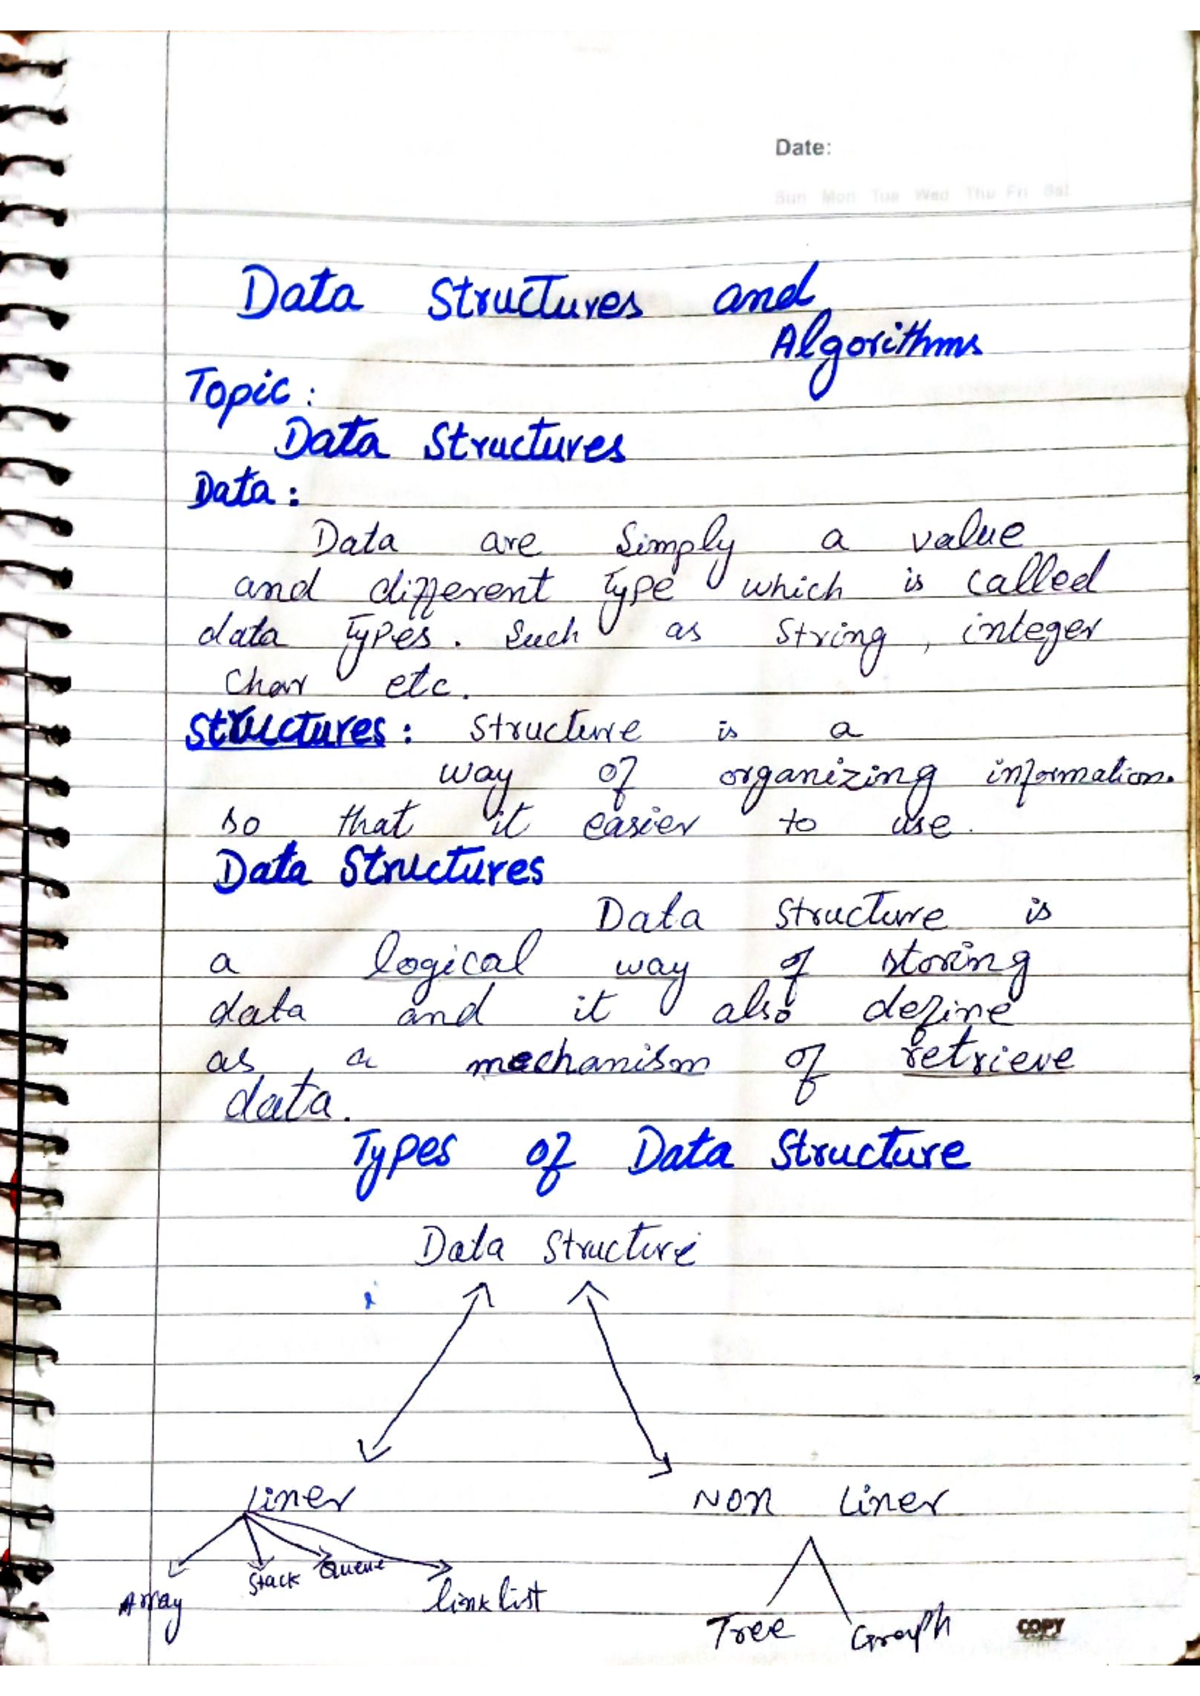 Date:
Sun Mon Tue Wed Thu Fri Sat
Data Structures and
Algorithms
Topic:
Data Structures
Data:
Data are Simply a value
and different type which is called
data types. Such as String, integer
Char etc.
Structures: Structure is a
way of organizing information.
so that it easier to use.
Data Structures
Data Structure is
a logical way of storing
data and it also define
as a mechanism of retrieve
data.
Types of Data Structure
Data Structure
Liner NON Liner
Array Stack Queue link list
Tree Graph
COPY